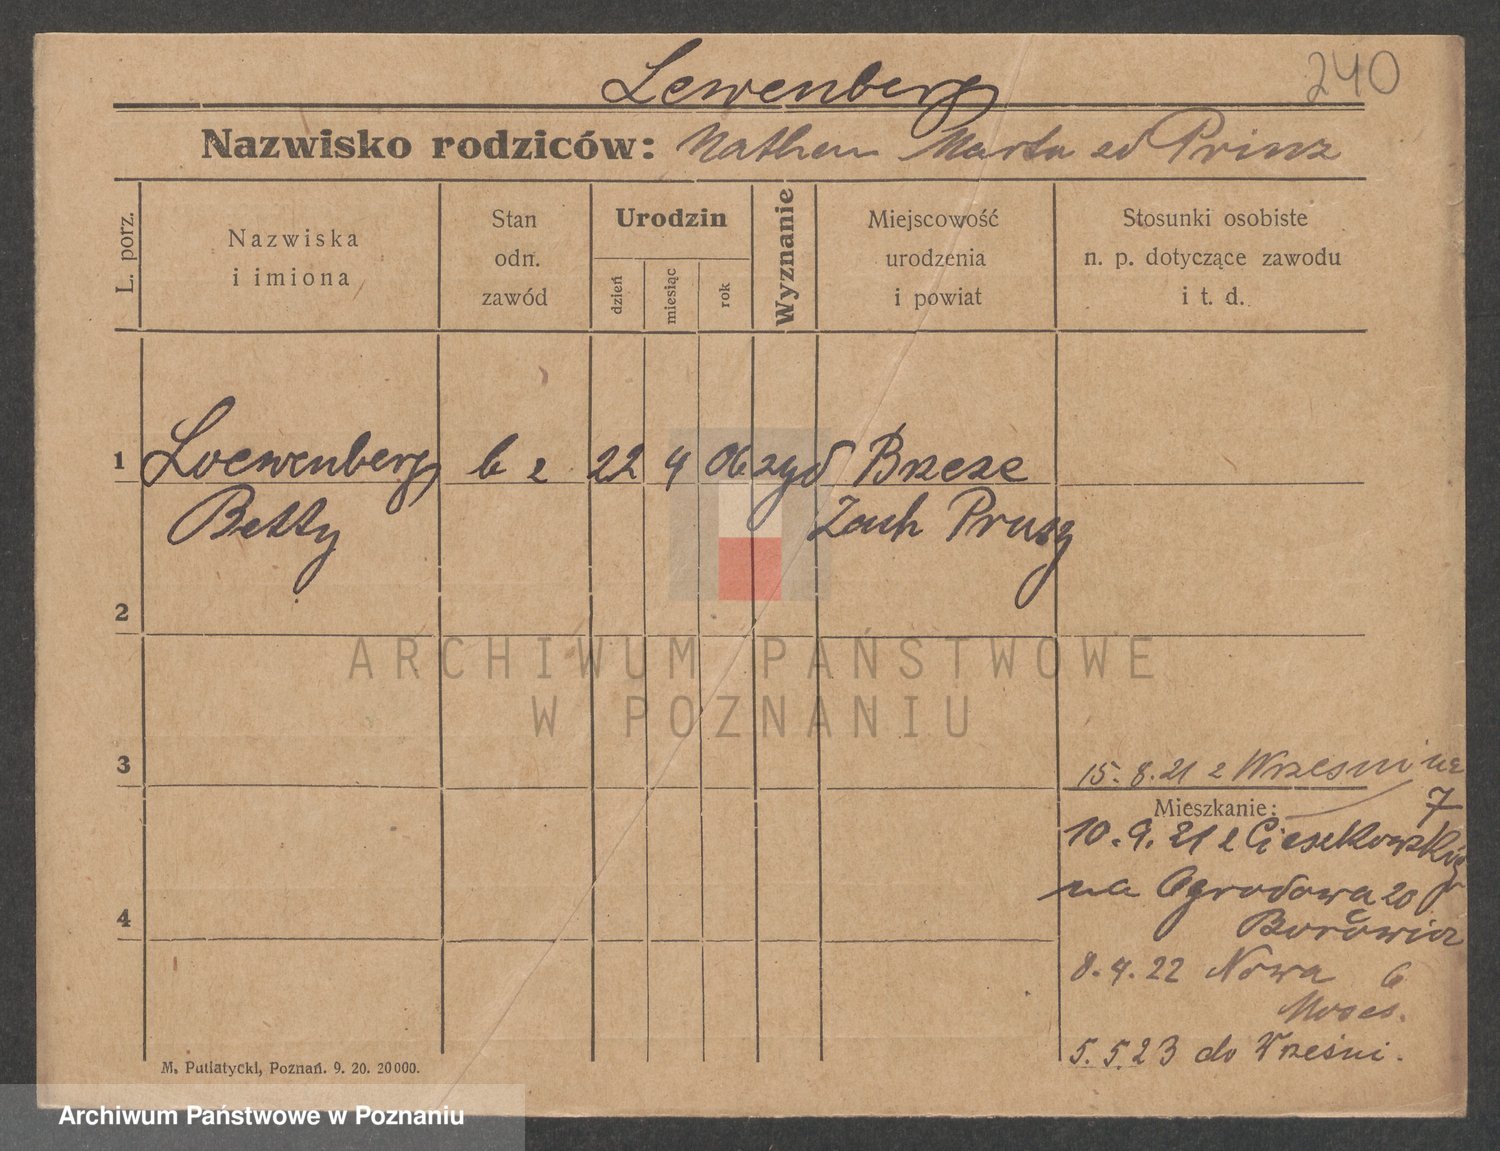 Lewenberg
240
Nazwisko rodziców: Nathan Marta zd Prinz
L. porz.
Nazwiska
i imiona
Stan
odn.
zawód
Urodzin
dzień
miesiąc
rok
Wyznanie
Miejscowość
urodzenia
i powiat
Stosunki osobiste
n. p. dotyczące zawodu
i t. d.
1 Loewenberg b z 22 4 06 żyd Brzeze
Betty Zach Prusy
2
3
15.8.21 z Wrzesni na
Mieszkanie: 7
10.9.21 z Cieszkowskiego
na Ogrodowa 20
4
8.4.22 Nowa 6
Moses.
5.5.23 do Wrześni.
M. Putiatycki, Poznań. 9. 20. 20 000.
ARCHIWUM PAŃSTWOWE
W POZNANIU
Archiwum Państwowe w Poznaniu